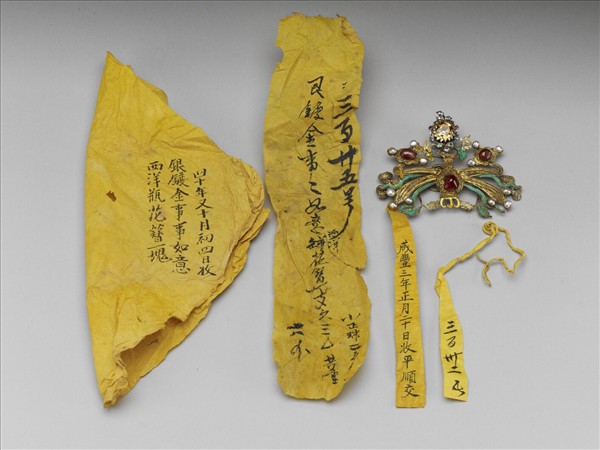 四十年又十月初四日收
銀鍍金事事如意
西洋瓶花簪一塊
三百廿五号
艮鍍金事〻如意
咸豐三年正月二十日收平順交
三百卅二号